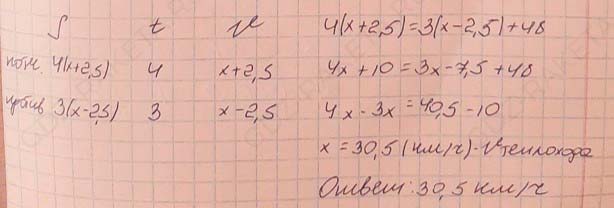 S t V
4(x+2,5) 4 x+2,5
против 3(x-2,5) 3 x-2,5
4(x+2,5)=3(x-2,5)+48
4x+10=3x-7,5+48
4x-3x=40,5-10
x=30,5 (км/ч)-V теплохода
Ответ: 30,5 км/ч